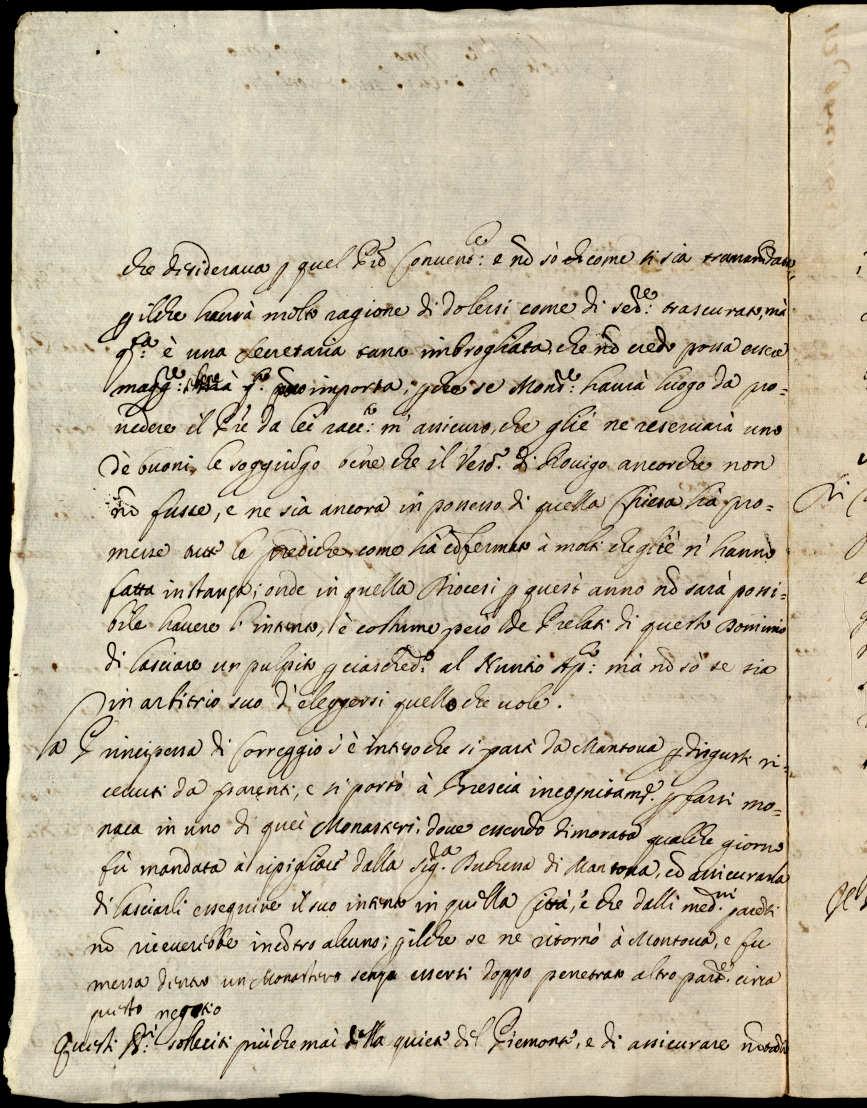 che desideraua p quel Prē Conuento: e nō sò come si sia tramandato
p ilche haurà molto ragione di dolersi come di sede: trascurato, mà
qsta: è una secretaria tanto imbrogliata, che nō credo possa essere
magge: mà qsto importa, pche se Monsre: haurà luogo da pro=
uedere il Prē da lei racco: m'assicuro, che gliè ne reseruarà uno
dè buoni, le soggiūgo bene che il Vesco: di Rouigo ancorche non
nō fusse, e ne sia ancora in possesso di quella Chiesa hà pro=
messe tutte le prediche, come hà cōfermato à molti che gliè n'hanno
fatta instanza; onde in quella Diocesi p quest'anno nō sarà possi=
bile hauere l'intento, è costume però de Prelati di questo Dominio
di lasciare un pulpito p ciasched:o al Nuntio Ap:co mà nō sò se sia
in arbitrio suo d'eleggersi quello che uole.
la Principessa di Correggio s'è inteso che si partì da Mantoua p disgusti ri=
ceuuti da parenti, e si portò à Brescia incognitamte. p farsi mo=
naca in uno di quei Monasteri; doue essendo dimorata qualche giorno
fù mandata à ripigliare dalla sigra. Duchessa di Mantoua, cō assicurarla
di lasciarli esseguire il suo intento in quella Città, è che dalli medmi. parenti
nō riceuerebbe incōtro alcuno; p ilche se ne ritornò à Mantoua, e fù
messa dentro un Monastero senza essersi doppo penetrato altro parte. circa
questo negotio
Questi Sri: solleciti più che mai della quiete del Piemonte, e di assicurare